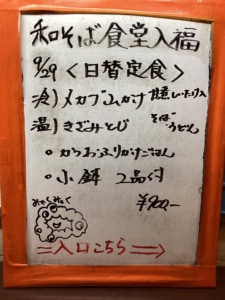 和そば食堂入福
9/29〈日替定食〉
冷)メカブぶっかけ
温)きざみとじ そば うどん
・かつおふりかけごはん
・小鉢 2品付
¥900-
みゃくみゃく
⇒入口こちら⇒